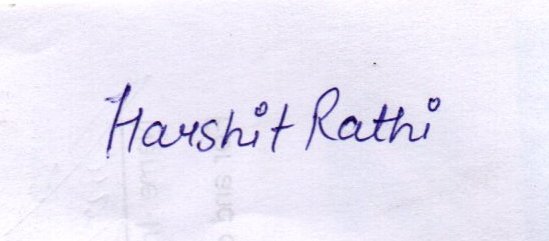 Harshit Rathi